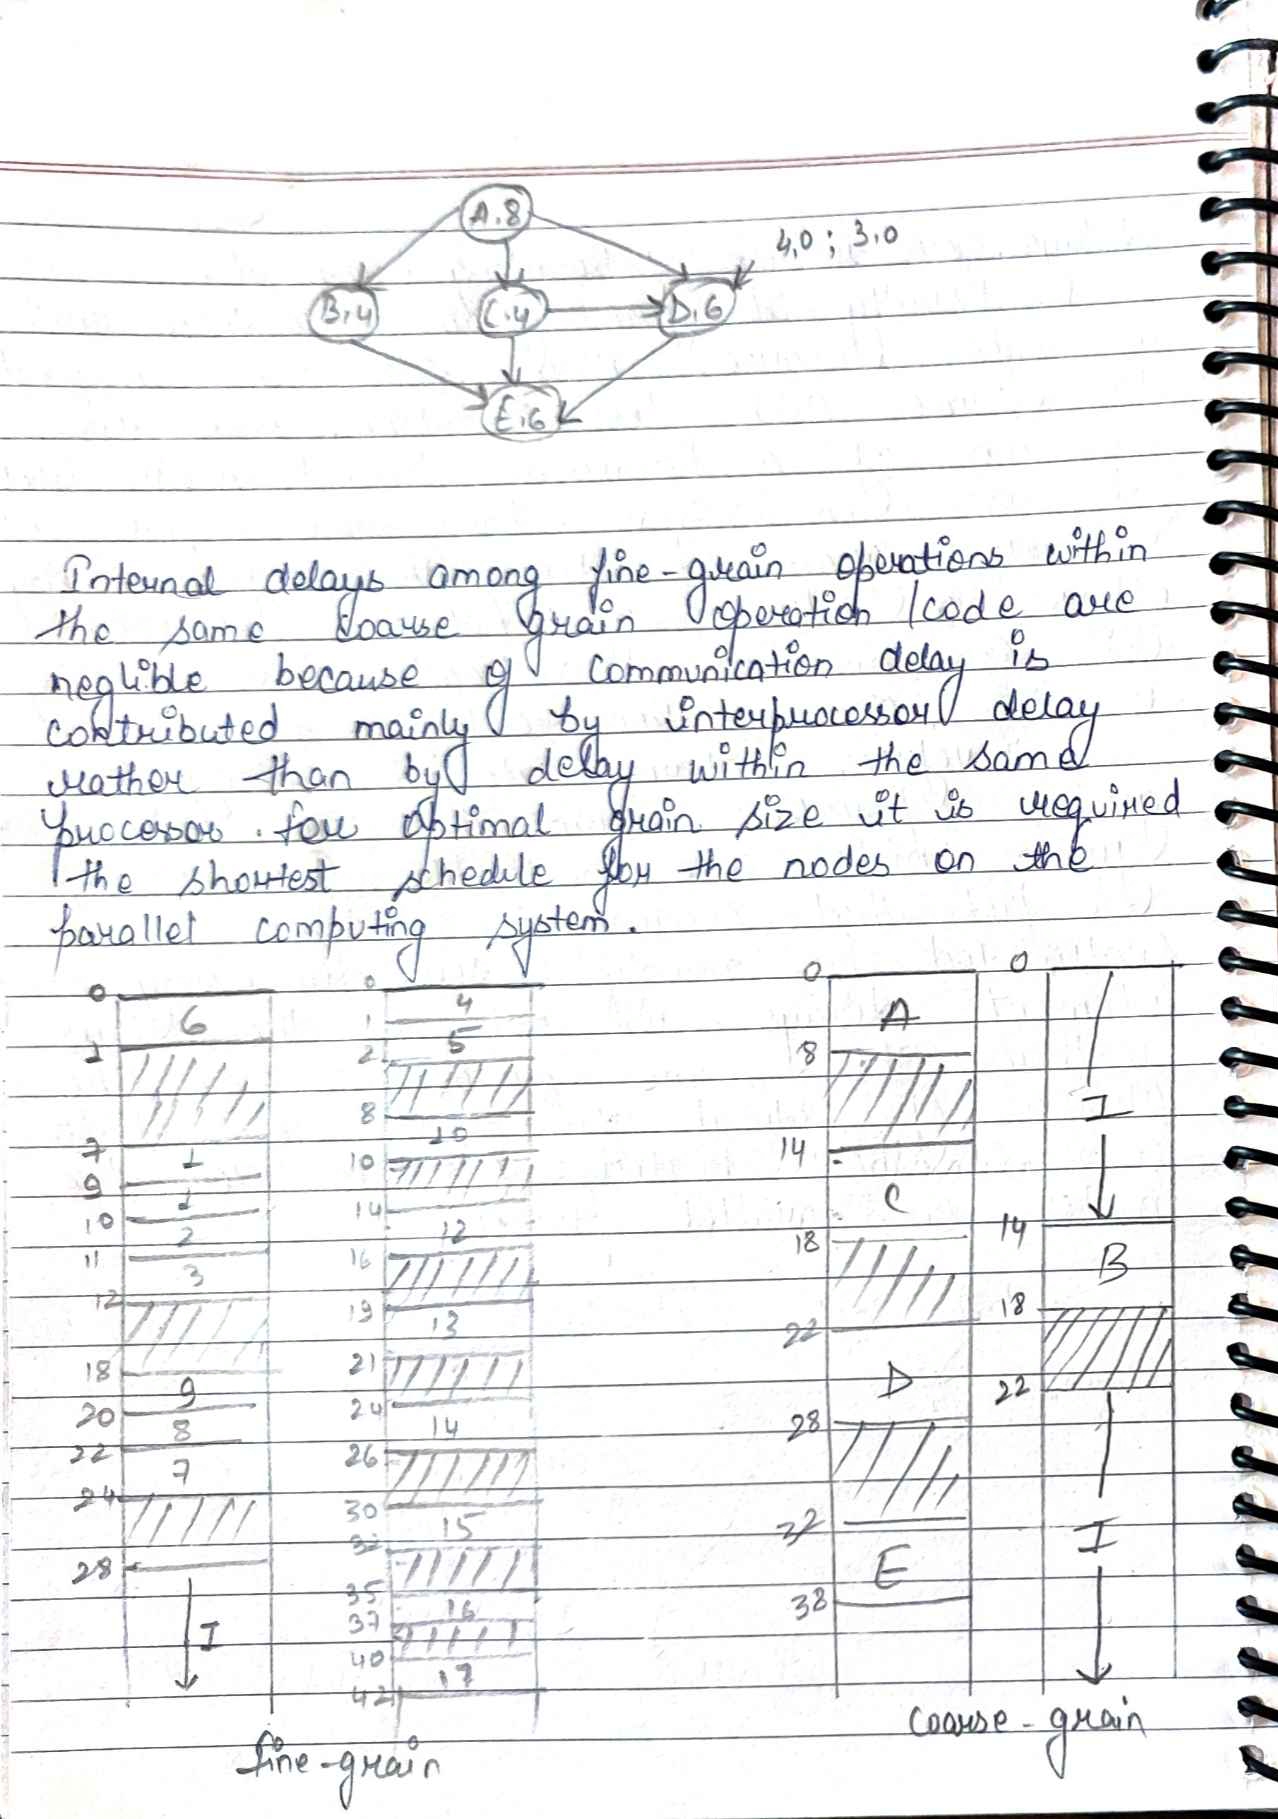 A.8
4,0 ; 3,0
B,4 C.4 D,6
E,6
Internal delays among fine-grain operations within
the same coarse grain operation /code are
neglible because of communication delay is
contributed mainly by interprocessor delay
rather than by delay within the same
processor. for optimal grain size it is required
the shortest schedule for the nodes on the
parallel computing system.
0
6
1
7
1
9
1
10
2
11
3
12
18
9
20
8
22
7
24
28
I
0
4
1
5
2
8
10
10
14
12
16
19
13
21
24
14
26
30
15
32
35
16
37
40
17
42
fine-grain
0
A
8
14
C
18
22
D
28
32
E
38
0
I
14
B
18
22
I
coarse-grain